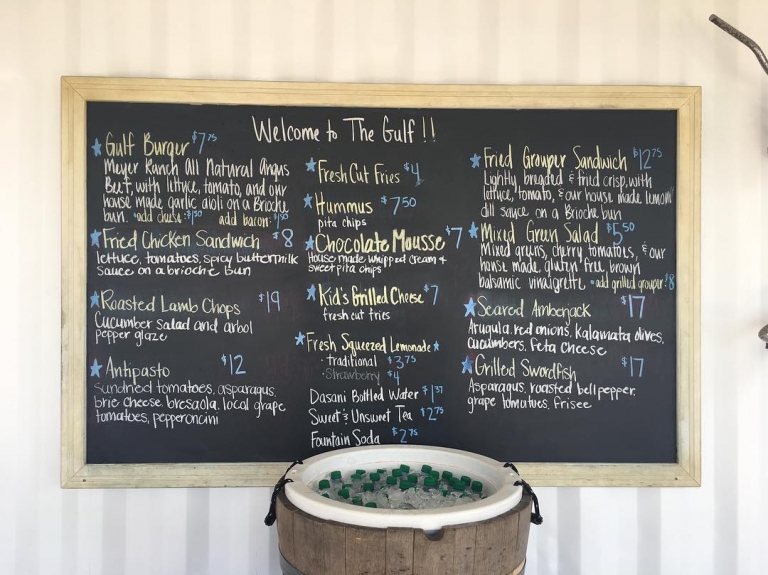 Welcome to The Gulf!!
Gulf Burger $7.75
Meyer Ranch All Natural Angus
Beef, with lettuce, tomato, and our
house made garlic aioli on a Brioche
bun. *add cheese: $1.50 add bacon: $1.50
Fried Chicken Sandwich $8
lettuce, tomatoes, spicy buttermilk
sauce on a brioche bun
Roasted Lamb Chops $19
Cucumber Salad and arbol
pepper glaze
Antipasto $12
Sundried tomatoes, asparagus,
brie cheese, bresaola, local grape
tomatoes, pepperoncini
Fresh Cut Fries $4
Hummus $7.50
pita chips
Chocolate Mousse $7
House made whipped cream &
sweet pita chips
Kid's Grilled Cheese $7
fresh cut fries
Fresh Squeezed Lemonade
·traditional $3.75
·Strawberry $4
Dasani Bottled Water $1.37
Sweet & Unsweet Tea $2.75
Fountain Soda $2.75
Fried Grouper Sandwich $12.75
Lightly breaded & fried crisp, with
lettuce, tomato, & our house made lemon
dill sauce on a Brioche bun
Mixed Green Salad $5.50
Mixed greens, cherry tomatoes, & our
house made gluten free, brown
balsamic vinaigrette *add grilled grouper: $8
Seared Amberjack $17
Arugula, red onions, Kalamata olives,
cucumbers, feta cheese
Grilled Swordfish $17
Asparagus, roasted bell pepper,
grape tomatoes, frisee